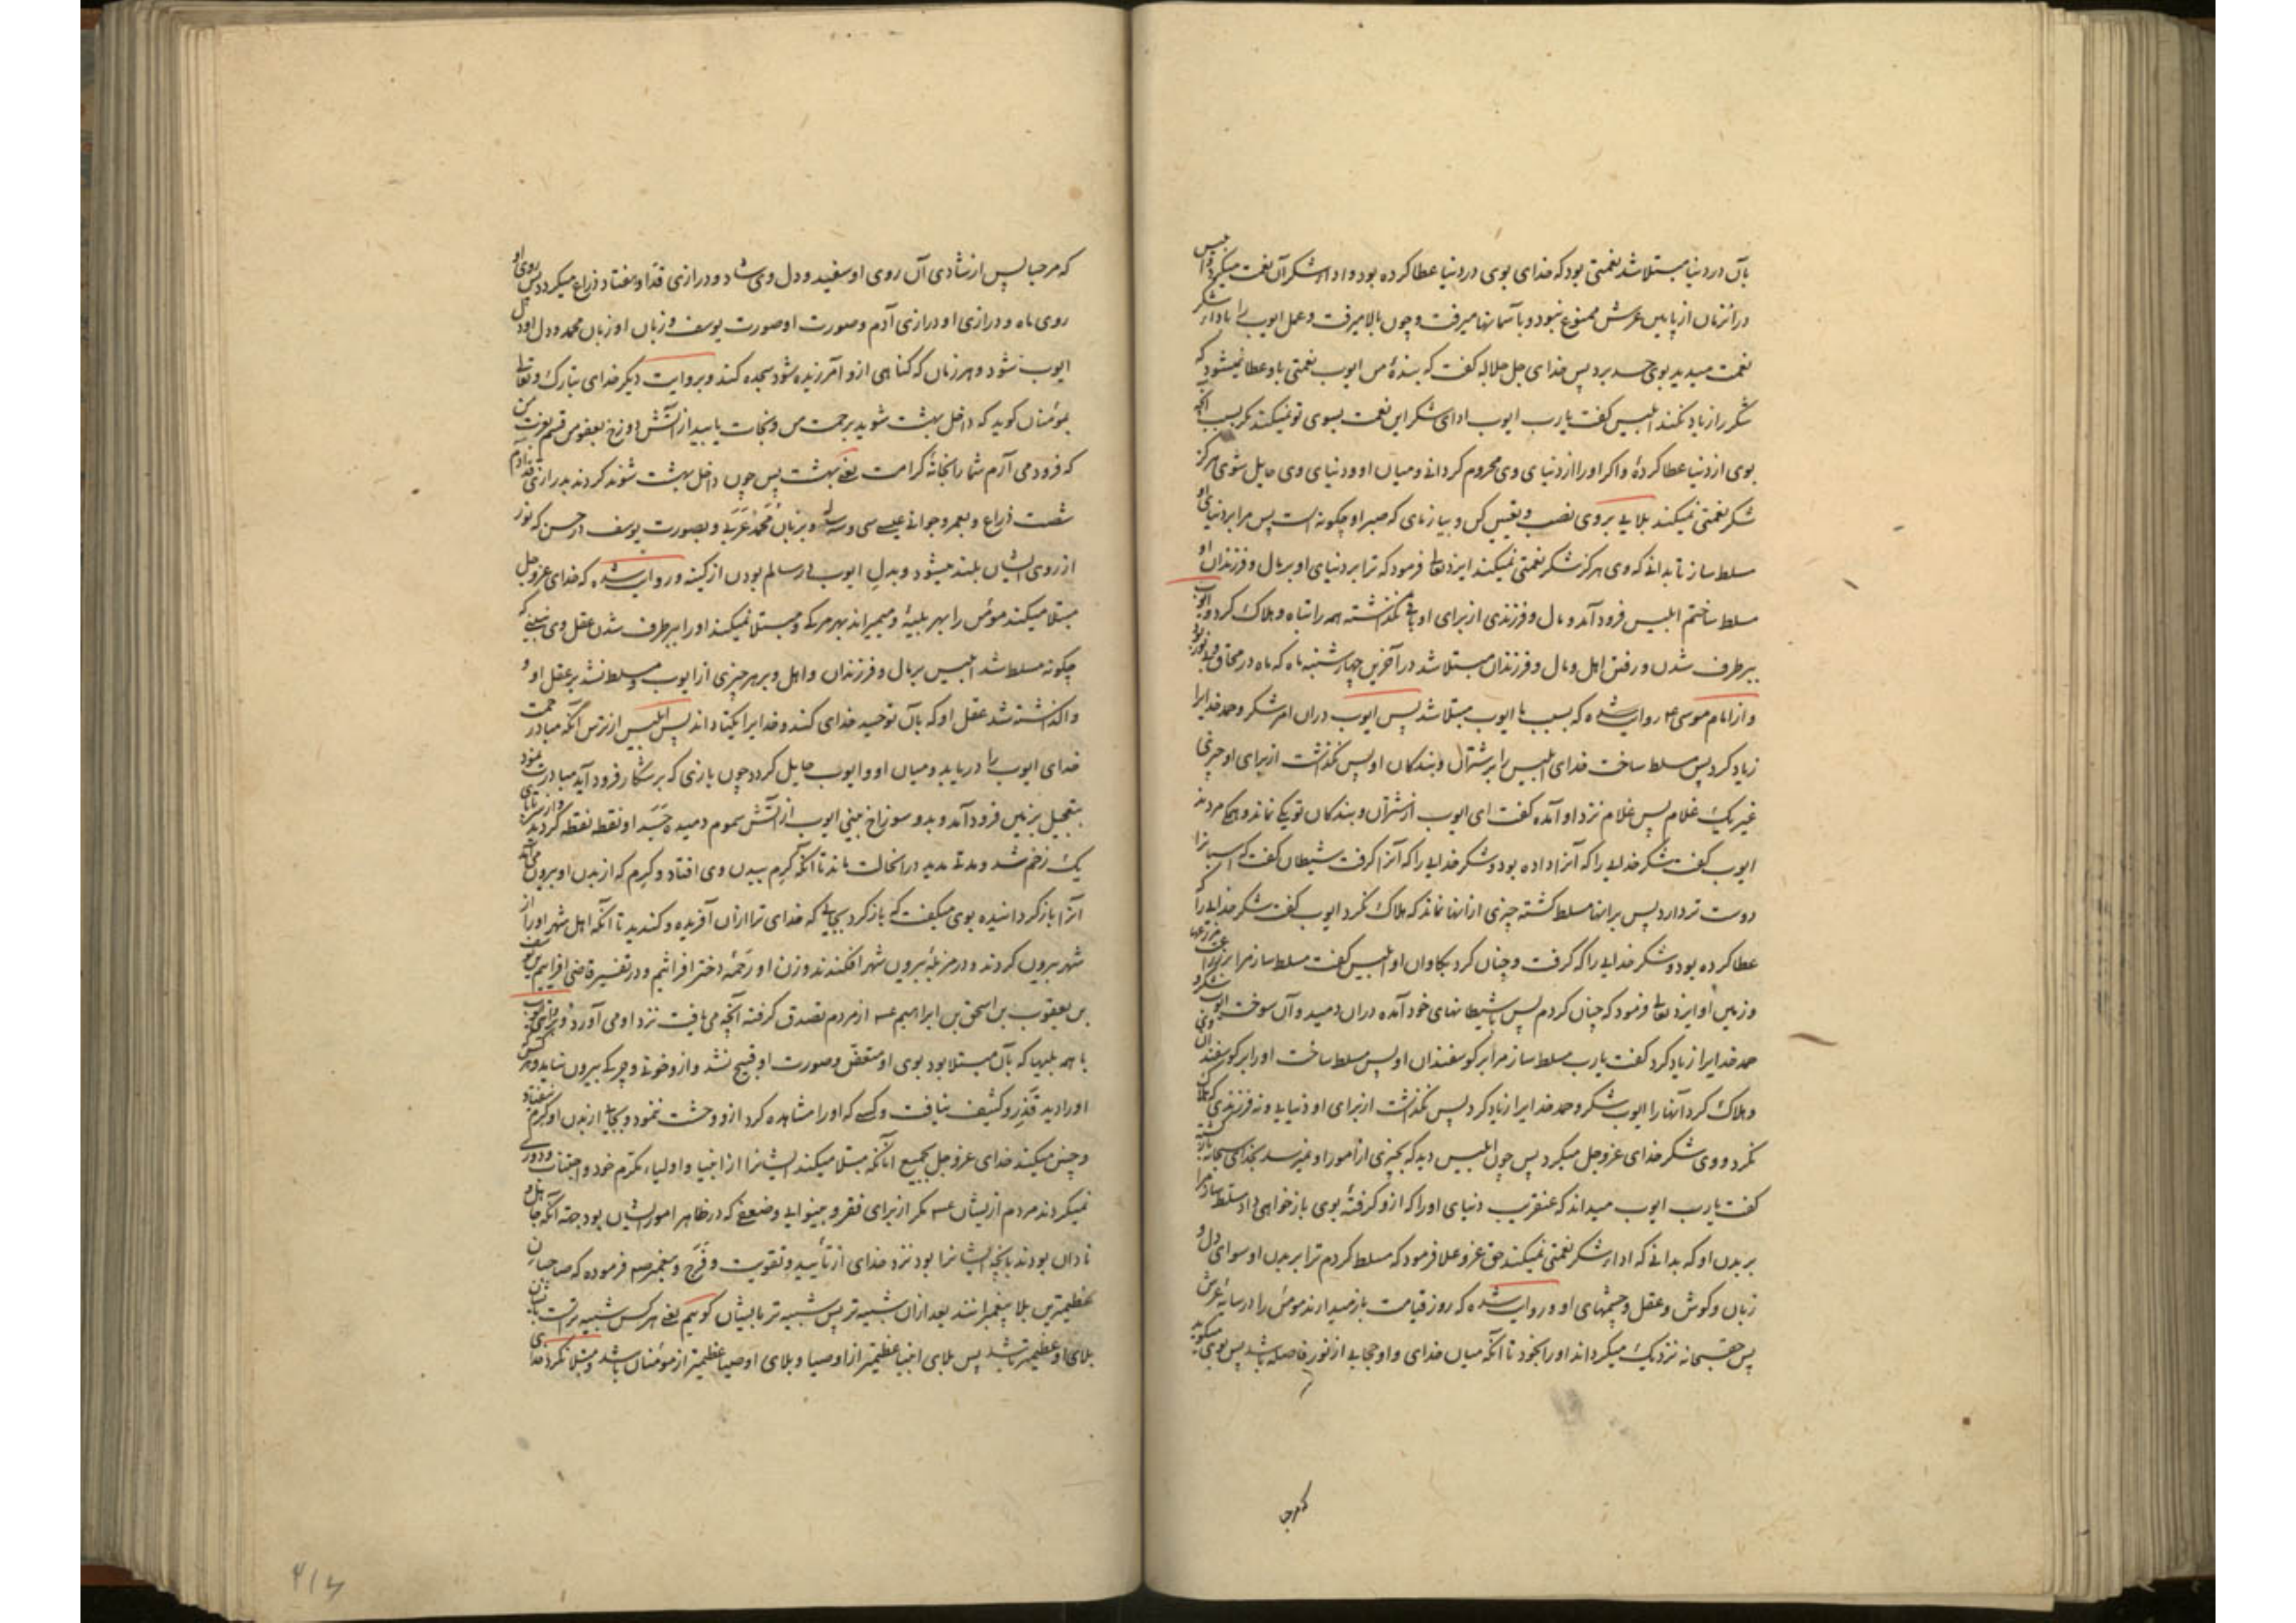 بآن در دنیا مبتلا شد نعمتی بود که خدای بوی در دنیا عطا کرده بود و ادای شکر آن نعمت میکرد و ابلیس
در آنزمان از پایین عرش ممنوع نبود و بآسمانها میرفت و چون بالا میرفت و عمل ایوب را باداء شکر
نعمت میدید بوی حسد برد پس خدای جل جلاله گفت که بندهٔ من ایوب نعمتی باو عطا نمیشود که
شکر را زیاد نکند ابلیس گفت یا رب ایوب ادای شکر این نعمت بسوی تو نمیکند مگر بسبب آنچه
بوی از دنیا عطا کردهٔ و اگر او را از دنیای وی محروم گردانی و میان او و دنیای وی حایل شوی هرگز
شکر نعمتی نمیکند بلایی بر وی نصب و تعیین کن و بیازمای که صبر او چگونه است پس مرا بر دنیای او
مسلط ساز تا بدانی که وی هرگز شکر نعمتی نمیکند ایزد تعالی فرمود که ترا بر دنیای او بر مال و فرزندان او
مسلط ساختم ابلیس فرود آمد و مال و فرزندی از برای او باقی نگذاشته همه را تباه و هلاک کرد و ایوب
ببرطرف شدن و رفتن اهل و مال و فرزندان مبتلا شد در آخرین چهارشنبه ماه که ماه در محاق
و از امام موسی ع روایت شده که بسبب ایوب مبتلا شد پس ایوب دران امر شکر و حمد خدایرا
زیاد کرد پس مسلط ساخت خدای ابلیس را بر شتران و بندگان او پس نگذاشت از برای او چیزی
غیر یک غلام پس غلام نزد او آمده گفت ای ایوب از شتران و بندگان تو یکی نماند و همکی مردند
ایوب گفت شکر خدایی را که آنرا داده بود و شکر خدایی را که آنرا گرفت شیطان گفت که اسبانرا
دوست تر دارد پس برانها مسلط گشته چیزی ازانها نماند که هلاک نکرد ایوب گفت شکر خدایی را که
عطا کرده بود و شکر خدایی را که گرفت و چنان کرد بگاوان او ابلیس گفت مسلط ساز مرا بر مزرعها
و زمین او ایزد تعالی فرمود که چنان کردم پس با شیطانهای خود آمده دران دمید و آن سوخت ایوب شکر و
حمد خدایرا زیاد کرد گفت یا رب مسلط ساز مرا بر گوسفندان او پس مسلط ساخت او را بر گوسفندان وی
و هلاک کرد آنها را ایوب شکر و حمد خدایرا زیاد کرد پس نگذاشت از برای او دنیایی و نه فرزندی که هلاک
نکرد و وی شکر خدای عز و جل میکرد پس چون ابلیس دید که بچیزی از امور او نمیرسد بخدای سبحانه بازگشته
گفت یا رب ایوب میداند که عنقریب دنیای او را که ازو گرفتهٔ بوی باز خواهی داد مسلط ساز مرا
بر بدن او که بدانی که اداء شکر نعمتی نمیکند حق عز و علا فرمود که مسلط کردم ترا بر بدن او سوای دل و
زبان و گوش و عقل و چشمهای او و روایت شده که روز قیامت باز میدارند مومن را در سایهٔ عرش
پس حقسبحانه نزدیک میگرداند او را بخود تا آنکه میان خدای و او حجابی از نور فاصله باشد پس بوی میگوید
که مرحبا
که مرحبا پس از شادی آن روی او سفید و دل وی شاد و درازی قد او هفتاد ذراع میگردد پس روی او
روی ماه و درازی او درازی آدم و صورت او صورت یوسف و زبان او زبان محمد و دل او دل
ایوب شود و هر زمان که گناهی ازو آمرزیده شود سجده کند و بروایت دیگر خدای تبارک و تعالی
بمومنان گوید که داخل بهشت شوید برحمت من و نجات یابید از آتش دوزخ بعفو من قسم بعزت من
که فرود می آرم شما را بخانهٔ کرامت یعنی بهشت پس چون داخل بهشت شوند گردند بدرازی قد آدم
شصت ذراع و بعمر و جوانی عیسی سی و سه ساله و بزبان محمد عربی و بصورت یوسف در حسن که نور
از روی ایشان بلند میشود و بدل ایوب در سالم بودن از کینه و روایت شده که خدای عز و جل
مبتلا میکند مومن را بهر بلیهٔ و میمیراند بهر مرگی و مبتلا نمیکند او را ببرطرف شدن عقل وی نمی بینی که
چگونه مسلط شد ابلیس بر مال و فرزندان و اهل و بر هر چیزی از ایوب و مسلط نشد بر عقل او و
واگذاشته شد عقل او که بآن توحید خدای کند و خدایرا یکتا داند پس ابلیس از ترس آنکه مبادا رحمت
خدای ایوب را دریابد و میان او و ایوب حایل گردد چون بازی که بر شکار فرود آید مبادرت نمود
بتعجیل بزمین فرود آمد و بدو سوراخ بینی ایوب از آتش سموم دمیده جسد او نقطه نقطه گردید
یک زخم شد و مدتی مدید درانحالت ماند تا آنکه کرم ببدن وی افتاد و کرم که از بدن او بیرون می آمد
آنرا باز گردانیده بوی میگفت که باز گرد بجایی که خدای ترا ازان آفریده و گندید تا آنکه اهل شهر او را از
شهر بیرون کردند و در مزبلهٔ بیرون شهر افکندند و زن او رحمه دختر افراثیم و در تفسیر قاضی افراییم بن یوسف
بن یعقوب بن اسحق بن ابراهیم ع از مردم تصدق گرفته آنچه می یافت نزد او می آورد
با همه بلیها که بآن مبتلا بود بوی او متعفن و صورت او قبیح نشد و ازو خونی و چرکی بیرون نیامد و هر کس
او را دید قذر و کثیف نیافت و کسی که او را مشاهده کرد ازو وحشت ننمود و بجایی از بدن او کرم نیفتاد
و چنین میکند خدای عز و جل بجمیع آنانکه مبتلا میکند ایشانرا از انبیا و اولیاء مکرم خود و اجتناب و دوری
نمیکردند مردم از ایشان ع مگر از برای فقر و بینوایی و ضعفی که در ظاهر امور ایشان بود بجهة آنکه جاهل و
نادان بودند بآنچه ایشانرا بود نزد خدای از تأیید و تقویت و فرج و پیغمبر ص فرموده که صاحبان
عظیمترین بلا پیغمبرانند بعد ازان شبیه تر پس شبیه تر بایشان گوییم یعنی هر کس شبیه تر است بایشان
بلای او عظیمتر باشد پس بلای انبیا عظیمتر از اوصیا و بلای اوصیا عظیمتر از مومنان باشد و مبتلا نکرد خدای